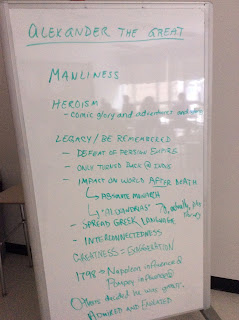 ALEXANDER THE GREAT
MANLINESS
HEROISM
- COMIC GLORY AND ADVENTURES
LEGACY/BE REMEMBERED
- DEFEAT OF PERSIAN EMPIRE
- ONLY TURNED BACK @ INDUS
- IMPACT ON WORLD AFTER DEATH
↳ ABSOLUTE MONARCH
↳ "ALEXANDRIAS" 70, actually,
- SPREAD GREEK LANGUAGE
- INTERCONNECTEDNESS
GREATNESS = EXAGGERATION
1798 - Napoleon influenced
Pompey influenced
Others decided he was great.
ADMIRED AND EMULATED